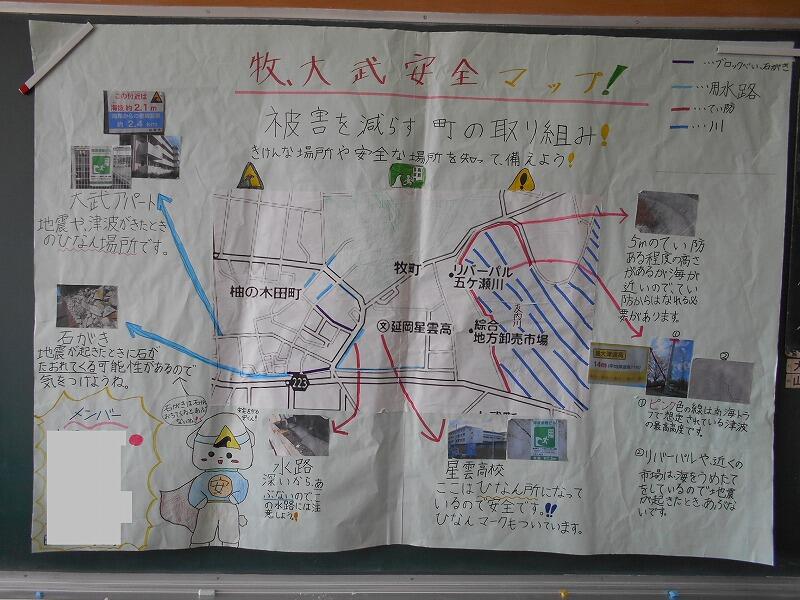 牧、大武安全マップ!
…ブロックべい、石がき
…用水路
…てい防
…川
被害を減らす町の取り組み!
きけんな場所や安全な場所を知って、備えよう!
この付近は
海抜 約2.1m
約2.4km
大武アパート
地震や、津波がきたとき
のひなん場所です。
石がき
地震が起きたときに石が
たおれてくる可能性があるので
気をつけようね。
牧町
柚の木田町
リバーパル
五ケ瀬川
文 延岡星雲高
総合
地方卸売市場
223
5mのてい防
ある程度の高さ
があるが海が
近いのでてい
防からはなれる必
要があります。
①
②
最大津波高
14m
①ピンク色の線は南海トラ
フで想定されている津波
の最高高度です。
②リバーパルや、近くの
市場は海をうめたて
をしているので地震
が起きたときあぶな
いです。
メンバー
安
水路
深いから、あ
ぶないので、こ
の水路には注
意しよう!
星雲高校
ここはひなん所になって
いるので安全です。!!
ひなんマークもついています。